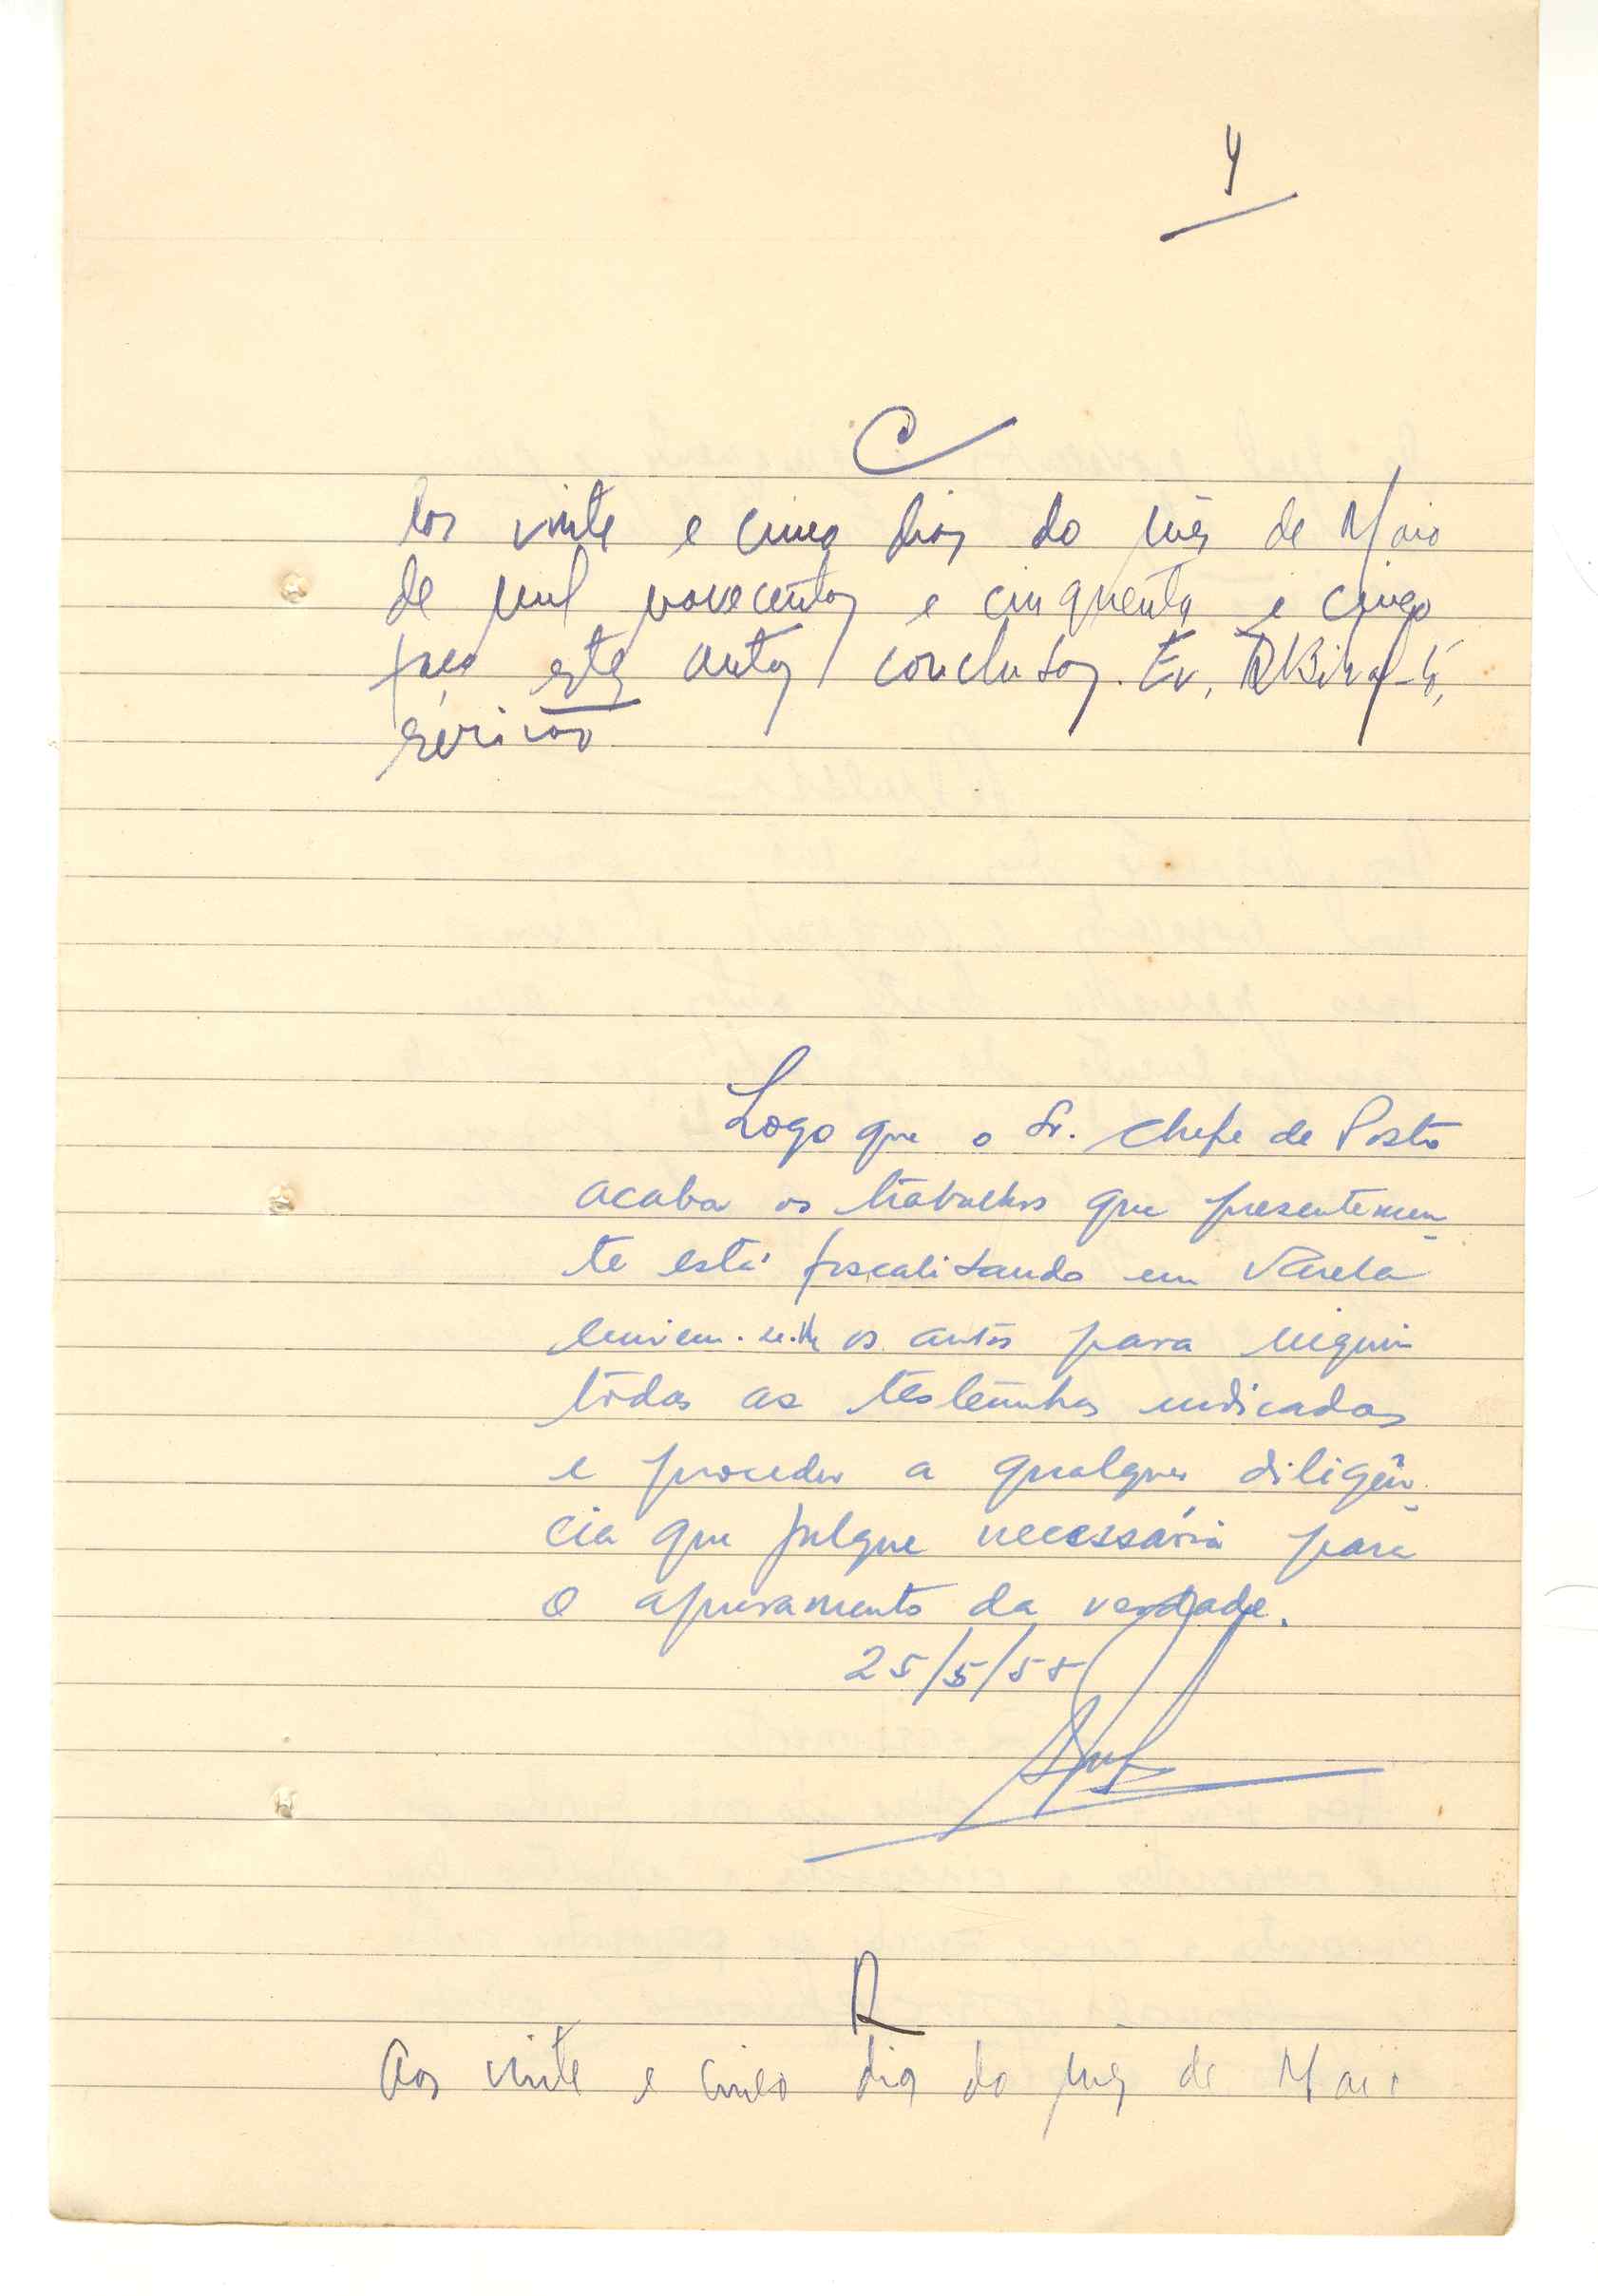 4
C
Aos vinte e cinco dias do mês de Maio
de mil novecentos e cinquenta e cinco
faço estes autos conclusos. Eu,
escrivão
Logo que o Sr. Chefe de Posto
acaba os trabalhos que presentemen-
te está fiscalizando em Varela
enviem-se-lhe os autos para inquirir
tôdas as testemunhas indicadas
e proceder a qualquer diligên-
cia que julgue necessária para
o apuramento da verdade.
25/5/55
R
Aos vinte e cinco dias do mês de Maio